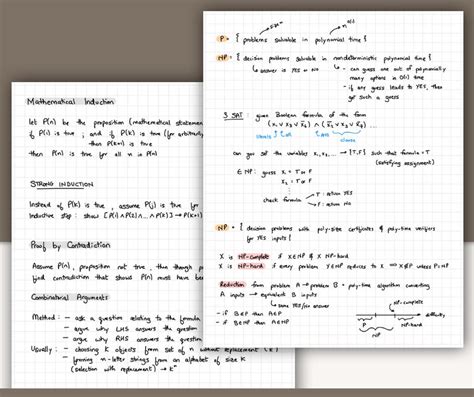 Mathematical Induction
let P(n) be the proposition (mathematical statement
if P(1) is true ; and if P(k) is true (for arbitrary
then P(k+1) is true
then P(n) is true for all n is P(n)
STRONG INDUCTION
Instead of P(k) is true , assume P(j) is true for
Inductive step : show [P(1)∧P(2)∧... ∧P(k)] → P(k+1)
Proof by Contradiction
Assume P(n), proposition not true, then though
find contradiction that shows P(n) must have been
Combinatorial Arguments
Method : - ask a question relating to the formula
- argue why LHS answers the question
- argue why RHS answers the question
Usually : - choosing K objects from set of n without replacement
- forming n-letter strings from an alphabet of size K
(selection with replacement) → kⁿ
P = { problems solvable in polynomial time }
NP = { decision problems solvable in nondeterministic polynomial time }
↳ answer is YES or NO
↳ - can guess one out of polynomially
many options in O(1) time
- if any guess leads to YES, then
get such a guess
3 SAT : given Boolean formula of the form
literals OR AND clause
can you set the variables x₁, x₂, ... → {T,F} such that formula = T
(satisfying assignment)
∈ NP : guess x₁ = T or F
x₂ = T or F
check formula T : return YES
F : return NO
NP = { decision problems with poly-size certificates & poly-time verifiers
for YES inputs }
X is NP-complete if X∈NP & X NP-hard
X is NP-hard if every problem Y∈NP reduces to X ⟹ X∉P unless P=NP
Reduction from problem A → problem B = poly-time algorithm converting
A inputs → equivalent B inputs
↳ same YES/NO answer
NP-complete
- if B∈P then A∈P
- if B∈NP then A∈NP
P NP NP-hard difficulty